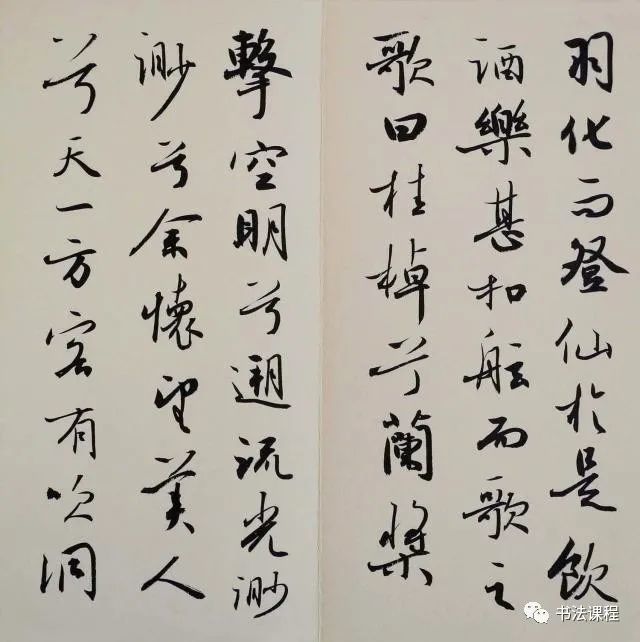 羽化而登仙於是飲
酒樂甚扣舷而歌之
歌曰桂棹兮蘭槳
擊空明兮遡流光渺
渺兮余懷望美人
兮天一方客有吹洞
书法课程